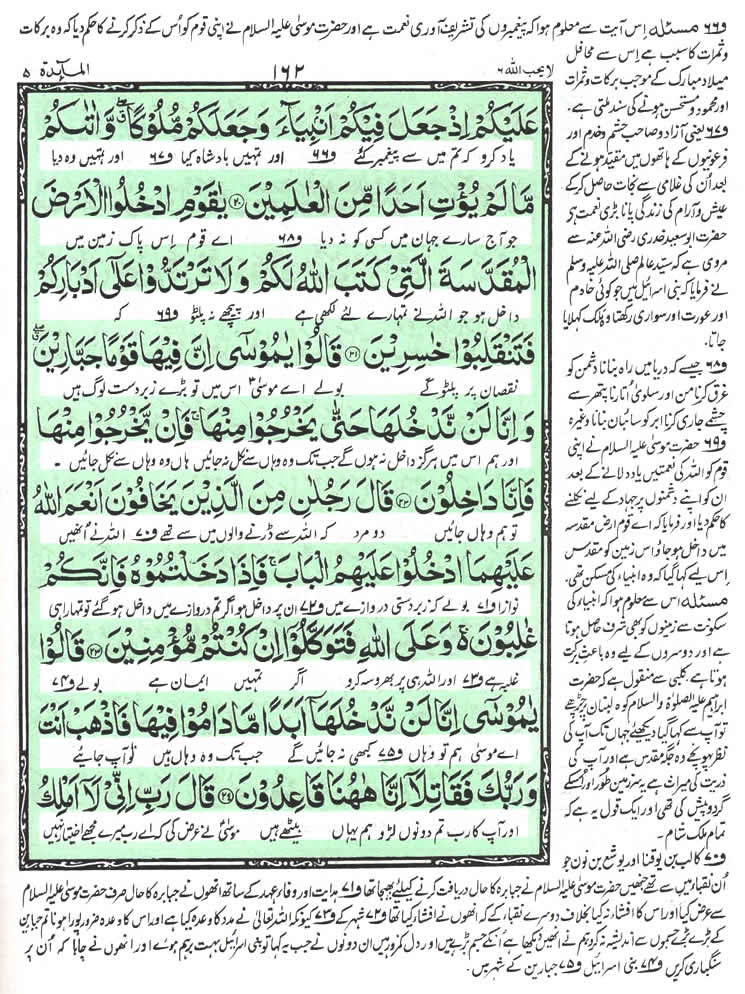 و٦٦ مسئلہ اِس آیت سے معلوم ہوا کہ پیغمبروں کی تشریف آوری نعمت ہے اور حضرت موسیٰ علیہ السلام نے اپنی قوم کو اُس کے ذکر کرنے کا حکم دیا کہ وہ برکات
لا یحب اللہ ٦
١٦٢
المآئدة ٥
عَلَيْكُمْ اِذْ جَعَلَ فِيْكُمْ اَنْۢبِيَآءَ وَجَعَلَكُمْ مُّلُوْكًا ۖۗ وَّاٰتٰىكُمْ
یاد کرو کہ تم میں سے پیغمبر کئے و٦٦ اور تمہیں بادشاہ کیا و٦٧ اور تمہیں وہ دیا
مَّا لَمْ يُؤْتِ اَحَدًا مِّنَ الْعٰلَمِيْنَ ۝٢٠ يٰقَوْمِ ادْخُلُوا الْاَرْضَ
جو آج سارے جہان میں کسی کو نہ دیا و٦٨ اے قوم اِس پاک زمین میں
الْمُقَدَّسَةَ الَّتِيْ كَتَبَ اللّٰهُ لَكُمْ وَلَا تَرْتَدُّوْا عَلٰٓى اَدْبَارِكُمْ
داخل ہو جو اللہ نے تمہارے لئے لکھی ہے اور پیچھے نہ پلٹو و٦٩ کہ
فَتَنْقَلِبُوْا خٰسِرِيْنَ ۝٢١ قَالُوْا يٰمُوْسٰٓى اِنَّ فِيْهَا قَوْمًا جَبَّارِيْنَ ۖۗ
نقصان پر پلٹو گے بولے اے موسیٰ اس میں تو بڑے زبردست لوگ ہیں
وَاِنَّا لَنْ نَّدْخُلَهَا حَتّٰى يَخْرُجُوْا مِنْهَا ۚ فَاِنْ يَّخْرُجُوْا مِنْهَا
اور ہم اس میں ہرگز داخل نہ ہوں گے جب تک وہ وہاں سے نکل نہ جائیں ہاں وہ وہاں سے نکل جائیں ۔
فَاِنَّا دَاخِلُوْنَ ۝٢٢ قَالَ رَجُلٰنِ مِنَ الَّذِيْنَ يَخَافُوْنَ اَنْعَمَ اللّٰهُ
تو ہم وہاں جائیں دو مرد کہ اللہ سے ڈرنے والوں میں سے تھے و٧٠ اللہ نے اُنھیں
عَلَيْهِمَا ادْخُلُوْا عَلَيْهِمُ الْبَابَ ۚ فَاِذَا دَخَلْتُمُوْهُ فَاِنَّكُمْ
نوازا و٧١ بولے کہ زبردستی دروازے میں و٧٢ ان پر داخل ہو اگر تم دروازے میں داخل ہو گئے تو تمہارا ہی
غٰلِبُوْنَ ۚ وَعَلَى اللّٰهِ فَتَوَكَّلُوْٓا اِنْ كُنْتُمْ مُّؤْمِنِيْنَ ۝٢٣ قَالُوْا
غلبہ ہے و٧٣ اور اللہ ہی پر بھروسہ کرو اگر تمہیں ایمان ہے بولے و٧٤
يٰمُوْسٰٓى اِنَّا لَنْ نَّدْخُلَهَآ اَبَدًا مَّا دَامُوْا فِيْهَا فَاذْهَبْ اَنْتَ
اے موسیٰ ہم تو وہاں و٧٥ کبھی نہ جائیں گے جب تک وہ وہاں ہیں تو آپ جائیے
وَرَبُّكَ فَقَاتِلَآ اِنَّا هٰهُنَا قَاعِدُوْنَ ۝٢٤ قَالَ رَبِّ اِنِّيْ لَآ اَمْلِكُ
اور آپ کا رب تم دونوں لڑو ہم یہاں بیٹھے ہیں موسیٰ نے عرض کی کہ اے رب میرے مجھے اختیار نہیں
وثمرات کا سبب ہے اِس سے محافل
میلاد مبارک کے موجب برکات و ثمرات
اور محمود و مستحسن ہونے کی سند ملتی ہے،
و٦٧ یعنی آزاد و صاحب حشم و خدم اور
فرعونیوں کے ہاتھوں میں مقید ہونے کے
بعد اُن کی غلامی سے نجات حاصل کر کے
عیش و آرام کی زندگی پانا بڑی نعمت ہے
حضرت ابو سعید خدری رضی اللہ عنہ سے
مروی ہے کہ سید عالم صلی اللہ علیہ وسلم
نے فرمایا کہ بنی اسرائیل میں جو کوئی خادم
اور عورت اور سواری رکھتا وہ ملک کہلایا
جاتا،
و٦٨ جیسے کہ دریا میں راہ بنانا دشمن کو
غرق کرنا من اور سلویٰ اُتارنا پتھر سے
چشمے جاری کرنا ابر کو سائبان بنانا وغیرہ
و٦٩ حضرت موسیٰ علیہ السلام نے اپنی
قوم کو اللہ کی نعمتیں یاد دلانے کے بعد
ان کو اپنے دشمنوں پر جہاد کے لیے نکلنے
کا حکم دیا اور فرمایا کہ اے قوم ارض مقدسہ
میں داخل ہو جاؤ اس زمین کو مقدس
اِس لیے کہا گیا کہ وہ انبیاء کی مسکن تھی،
مسئلہ اس سے معلوم ہوا کہ انبیاء کی
سکونت سے زمینوں کو بھی شرف حاصل ہوتا
ہے اور دوسروں کے لیے وہ باعث برکت
ہوتا ہے کلبی سے منقول ہے کہ حضرت
ابراہیم علیہ الصلوٰة والسلام کوہ لبنان پر چڑھے
تو آپ سے کہا گیا دیکھئے جہاں تک آپ کی
نظر پہونچے وہ جگہ مقدس ہے اور آپ کی
ذریت کی میراث ہے یہ سرزمین طور اور اُسکے
گرد و پیش کی تھی اور ایک قول یہ ہے کہ
تمام ملک شام،
و٧٠ کالب بن یوقنا اور یوشع بن نون جو
اُن نقباء میں سے تھے جنھیں حضرت موسیٰ علیہ السلام نے جبابرہ کا حال دریافت کرنے کیلئے بھیجا تھا و٧١ ہدایت اور وفاء عہد کے ساتھ انھوں نے جبابرہ کا حال صرف حضرت موسیٰ علیہ السلام
سے عرض کیا اور اس کا افشاء نہ کیا بخلاف دوسرے نقباء کے کہ انھوں نے افشا کیا تھا و٧٢ شہر کے و٧٣ کیونکہ اللہ تعالیٰ نے مدد کا وعدہ کیا ہے اور اس کا وعدہ ضرور پورا ہونا تم جبارین
کے بڑے بڑے جسموں سے اندیشہ نہ کرو ہم نے انھیں دیکھا ہے اُنکے جسم بڑے ہیں اور دل کمزور ہیں ان دونوں نے جب یہ کہا تو بنی اسرائیل بہت برہم ہوئے اور انھوں نے چاہا کہ اُن پر
سنگباری کریں و٧٤ بنی اسرائیل و٧٥ جبارین کے شہر میں ۔